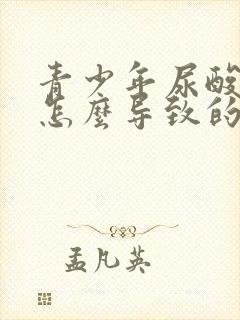 青少年尿酸
怎麼导致的
孟凡英